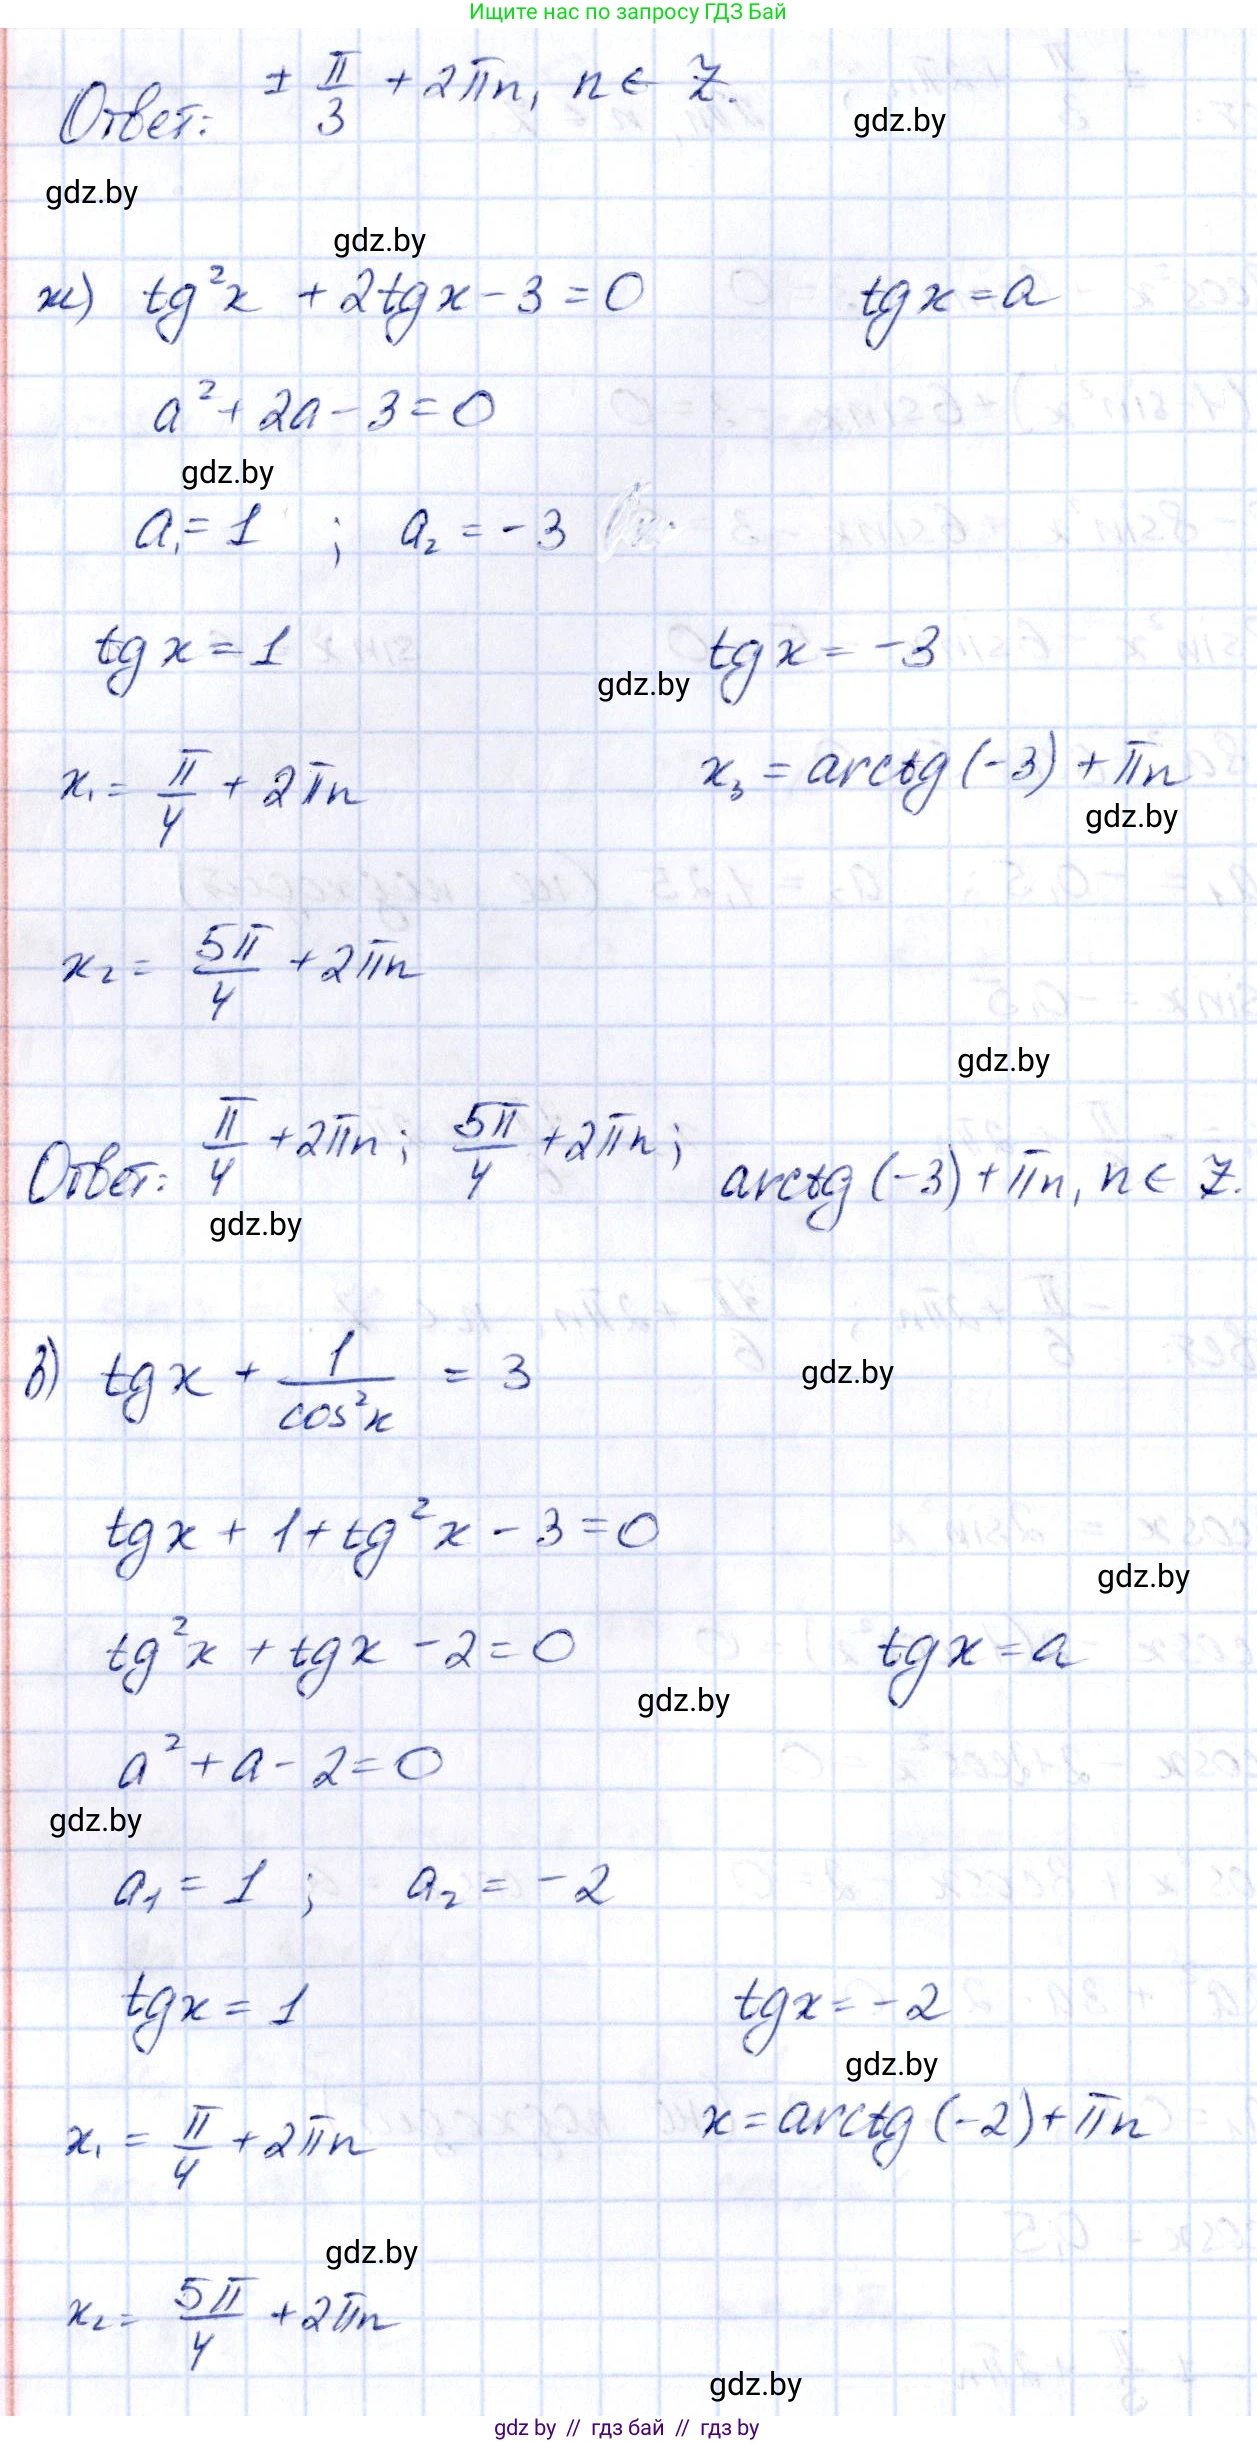 Ищите нас по запросу ГДЗ Бай
Ответ: ± π/3 + 2πn, n ∈ Z.
gdz.by
gdz.by
gdz.by
ж) tg²x + 2tgx - 3 = 0 tgx = a
a² + 2a - 3 = 0
gdz.by
a₁ = 1 ; a₂ = -3
tgx = 1 tgx = -3
gdz.by
x₁ = π/4 + 2πn x₃ = arctg(-3) + πn
gdz.by
x₂ = 5π/4 + 2πn
gdz.by
Ответ: π/4 + 2πn; 5π/4 + 2πn; arctg(-3) + πn, n ∈ Z.
gdz.by
з) tgx + 1/cos²x = 3
gdz.by
tgx + 1 + tg²x - 3 = 0
gdz.by
tg²x + tgx - 2 = 0 tgx = a
gdz.by
a² + a - 2 = 0
gdz.by
a₁ = 1 ; a₂ = -2
tgx = 1 tgx = -2
gdz.by
x₁ = π/4 + 2πn x = arctg(-2) + πn
gdz.by
x₂ = 5π/4 + 2πn
gdz.by
gdz by // гдз бай // гдз by